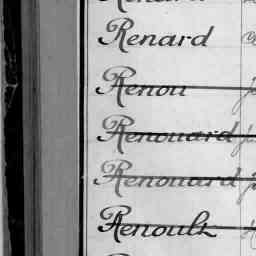 Renard
Renou
Renouard
Renouard
Renoult